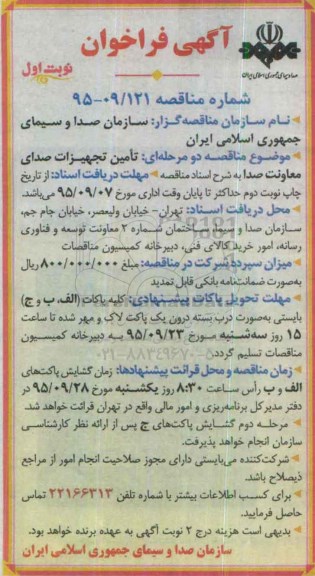 آگهی فراخوان
صدا و سیمای جمهوری اسلامی ایران
نوبت اول
شماره مناقصه ۰۹/۱۲۱-۹۵
نام سازمان مناقصه‌گزار: سازمان صدا و سیمای
جمهوری اسلامی ایران
موضوع مناقصه دو مرحله‌ای: تأمین تجهیزات صدای
معاونت صدا به شرح اسناد مناقصه مهلت دریافت اسناد: از تاریخ
چاپ نوبت دوم حداکثر تا پایان وقت اداری مورخ ۹۵/۰۹/۰۷ می‌باشد.
محل دریافت اسناد: تهران- خیابان ولیعصر، خیابان جام جم،
سازمان صدا و سیما، ساختمان شماره ۲ معاونت توسعه و فناوری
رسانه، امور خرید کالای فنی، دبیرخانه کمیسیون مناقصات
میزان سپرده شرکت در مناقصه: مبلغ ۸۰۰/۰۰۰/۰۰۰ ریال
به‌صورت ضمانت‌نامه بانکی قابل تمدید
مهلت تحویل پاکات پیشنهادی: کلیه پاکات (الف، ب و ج)
بایستی به‌صورت درب بسته درون یک پاکت لاک و مهر شده تا ساعت
۱۵ روز سه‌شنبه مورخ ۹۵/۰۹/۲۳ به دبیرخانه کمیسیون
مناقصات تسلیم گردد.
زمان مناقصه و محل قرائت پیشنهادها: زمان گشایش پاکت‌های
الف و ب رأس ساعت ۸:۳۰ روز یکشنبه مورخ ۹۵/۰۹/۲۸ در
دفتر مدیرکل برنامه‌ریزی و امور مالی واقع در تهران قرائت خواهد شد.
مرحله دوم گشایش پاکت‌های ج پس از ارائه نظر کارشناسی
سازمان انجام خواهد پذیرفت.
شرکت‌کننده می‌بایستی دارای مجوز صلاحیت انجام امور از مراجع
ذیصلاح باشد.
برای کسب اطلاعات بیشتر با شماره تلفن ۲۲۱۶۶۳۱۳ تماس
حاصل فرمایید.
بدیهی است هزینه درج ۲ نوبت آگهی به عهده برنده خواهد بود.
سازمان صدا و سیمای جمهوری اسلامی ایران